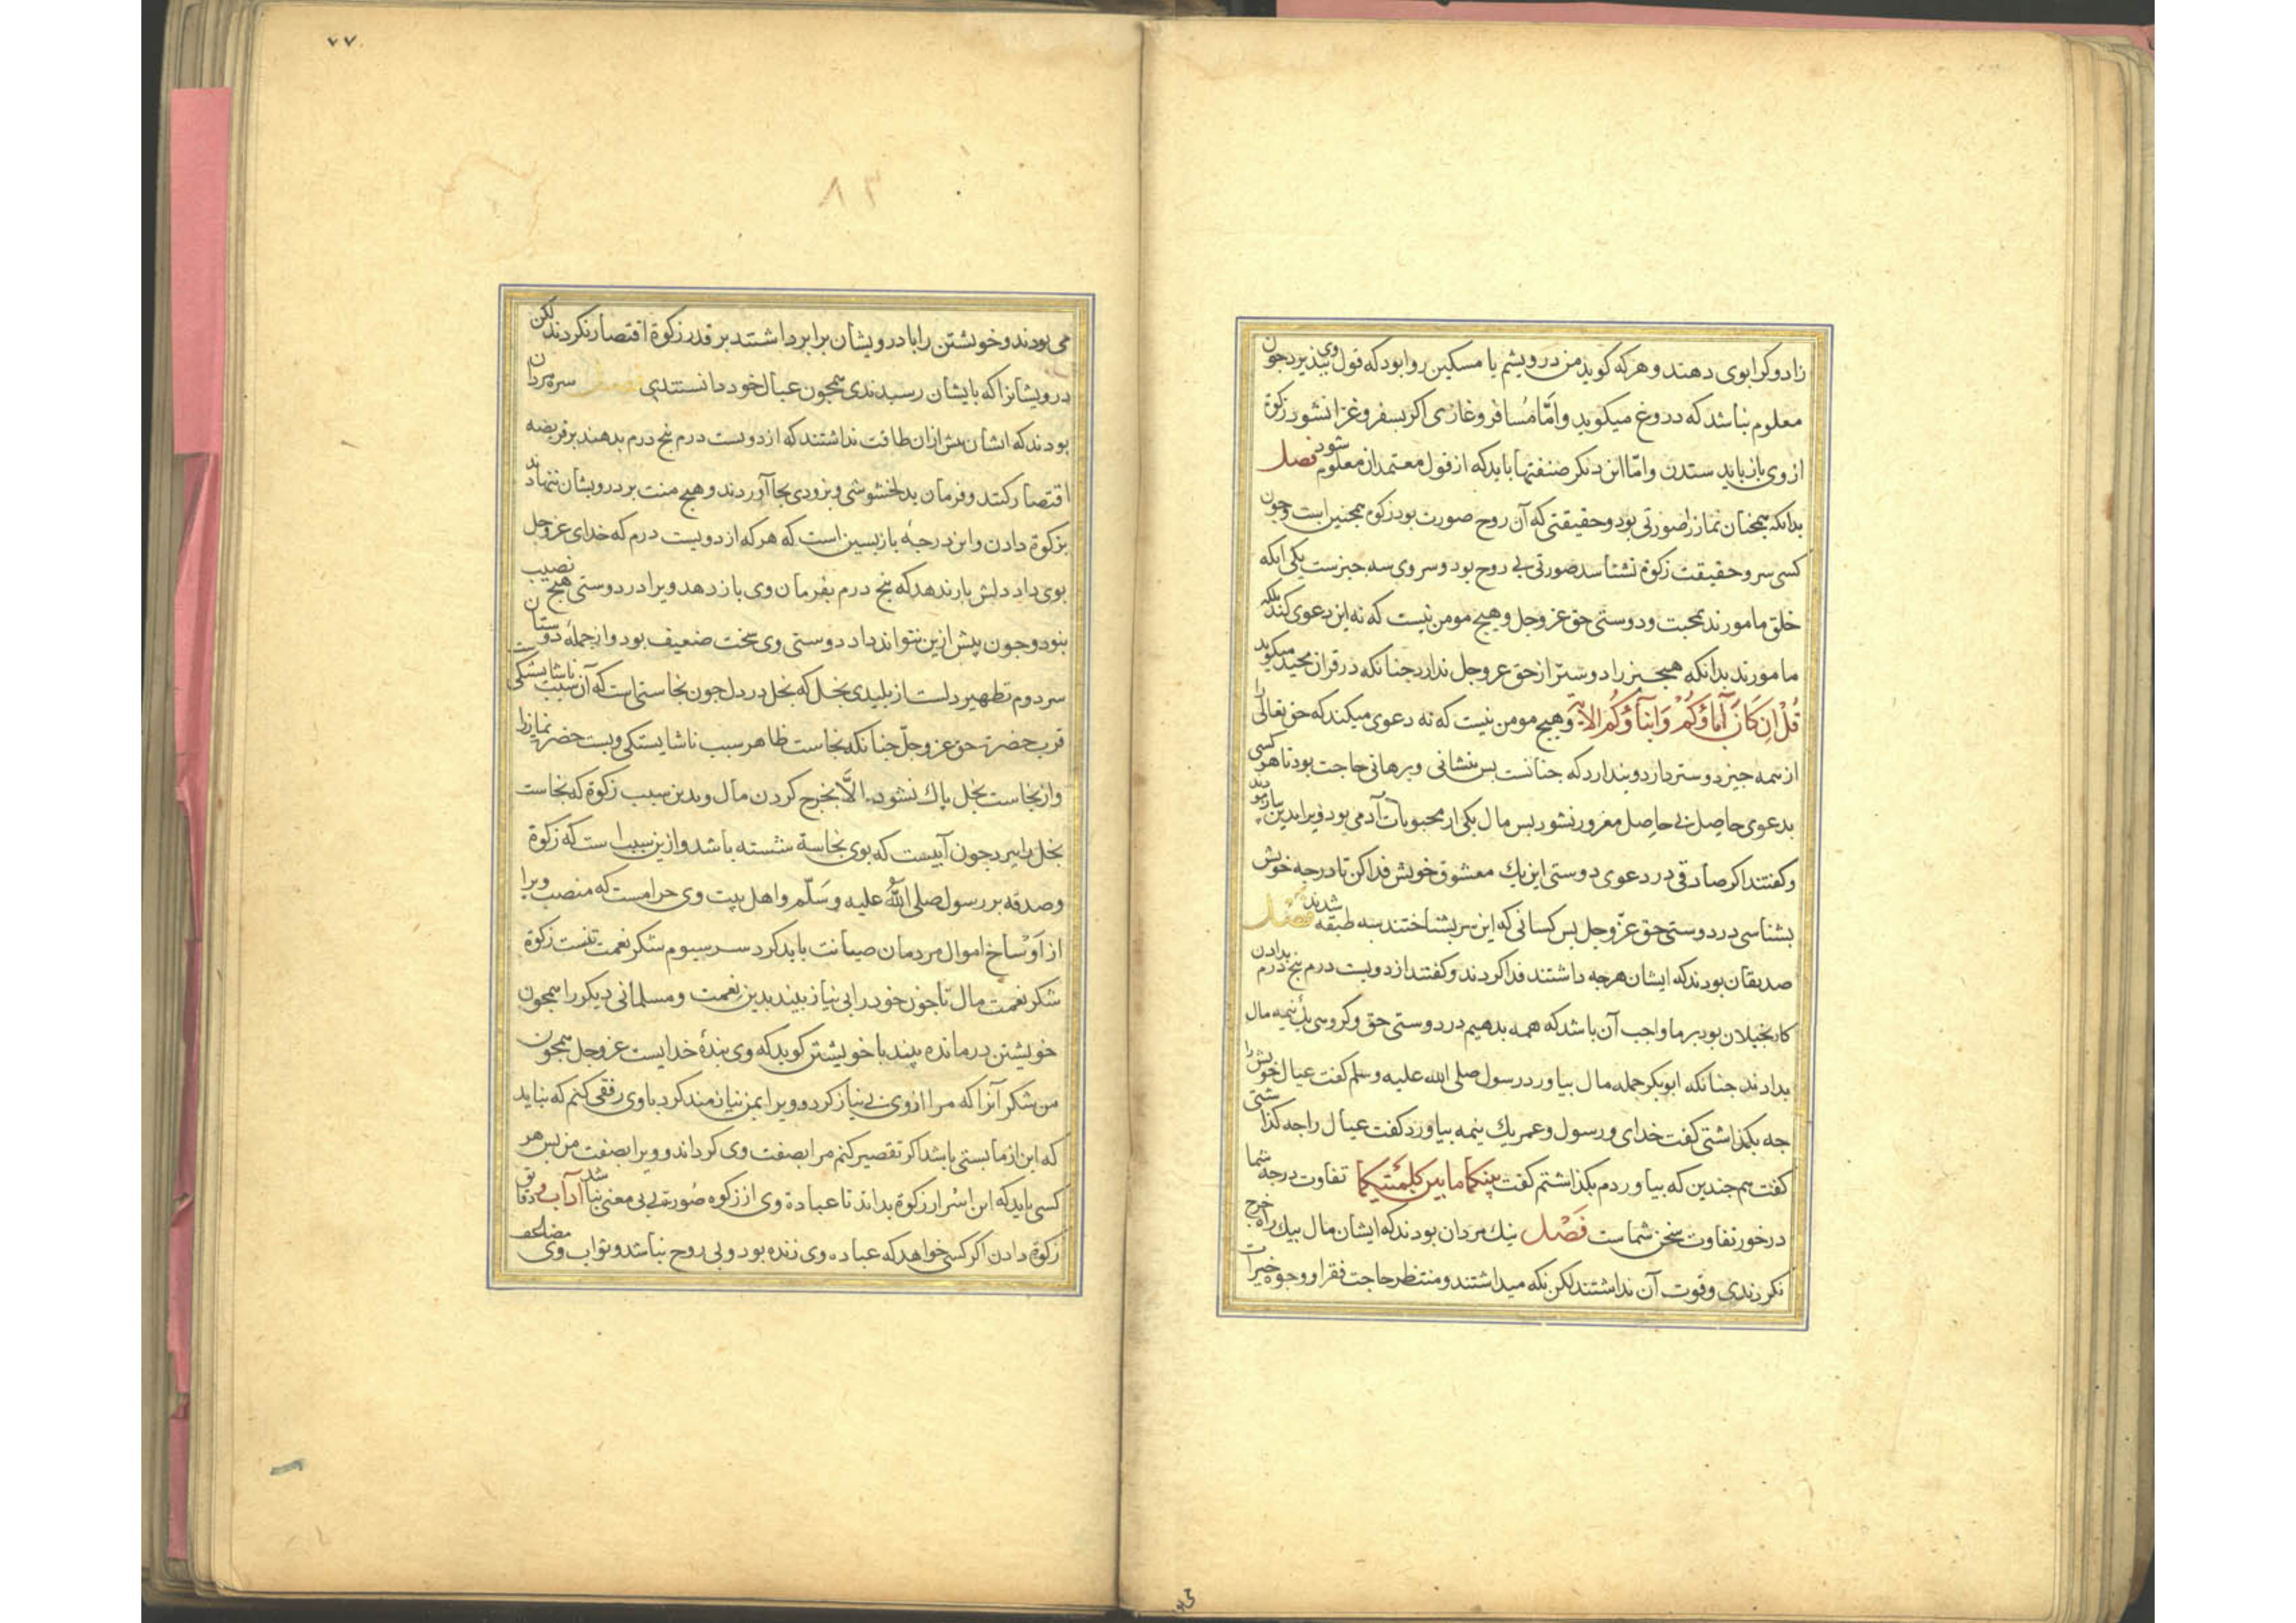 زاد و کرا بوی دهند و هر که کوید من درویشم یا مسکین روا بود که قول وی بپذیرد جون
معلوم نباشد که دروغ میکوید و امّا مُسافر و غازی اکر بسفر و غزا نشود زکوة
از وی باز باید ستدن و امّا این دیکر صنفتها باید که از قول معتمدان معلوم شود فصل
بدانکه همجنان نماز را صورتی بود و حقیقتی که آن روح صورت بود زکوة همجنین است و جون
کسی سر و حقیقت زکوة نشناسد صورتی بی روح بود و سر وی سه جیزست یکی انکه
خلق مامورند بمحبت و دوستی حق عز و جل و هیج مومن نیست که نه این دعوی کند بلکه
مامورند بدانکه هیج جیز را دوستر از حق عز و جل ندارد جنانکه در قران مجید میکوید
قُلْ اِن کَانَ آبَاؤُکُمْ وَابناؤُکُم الآیة و هیج مومن نیست که نه دعوی میکند که حق تعالی را
از همه جیز دوستر دارد و بندارد که جنانست بس بنشانی و برهانی حاجت بود تا هر کسی
بدعوی حاصل بی حاصل مغرور نشود بس مال یکی از محبوبات آدمی بود ویرا بدین بیازمودند
و کفتند اکر صادقی در دعوی دوستی این یك معشوق خویش فدا کن تا درجه خویش
بشناسی در دوستی حق عزّ و جل بس کسانی که این سر بشناختند بسه طبقه شدند فصل
صدیقان بودند که ایشان هرجه داشتند فدا کردند و کفتند از دویست درم بنج درم بدادن
کار بخیلان بود بر ما واجب آن باشد که همه بدهیم در دوستی حق و کروهی یك نیمه مال
بدادند جنانکه ابوبکر جمله مال بیاورد رسول صلی الله علیه و سلم کفت عیال خویش را
جه بکذاشتی کفت خدای و رسول و عمر یك نیمه بیاورد کفت عیال را جه کذاشتی
کفت هم جندین که بیاوردم بکذاشتم کفت بینکما ما بین کلمتیکما تفاوت درجه شما
در خور تفاوت سخن شماست فَصْل نیك مردان بودند که ایشان مال بیك راه خرج
نکردندی و قوت آن نداشتند لکن نکه میداشتند و منتظر حاجت فقرا و وجوه خیرات
٧٧
٨٣
می بودند و خویشتن را با درویشان برابر داشتند بر قدر زکوة اقتصار نکردند لکن
درویشانرا که بایشان رسیدندی همجون عیال خود دانستندی فصل سره مردان
بودند که ایشان بیش ازان طاقت نداشتند که از دویست درم بنج درم بدهند بر فریضه
اقتصار کنند و فرمان بدلخشوشی و بزودی بجا آوردند و هیج منت بر درویشان ننهادند
بزکوة دادن و این درجهٔ بازبسین است که هر که از دویست درم که خدای عز و جل
بوی داد دلش بار ندهد که بنج درم بفرمان وی باز دهد ویرا در دوستی هیج نصیب
نبود و جون بیش ازین نتواند داد دوستی وی سخت ضعیف بود و از جملهٔ دوستان
سر دوم تطهیر دلست از بلیدی بخل که بخل در دل جون نجاستی است که آن سبب ناشایستکی
قرب حضرت حق عز و جلّ جنانکه نجاست ظاهر سبب ناشایستکی وبست حضرت نماز را
و از نجاست بخل باك نشود الاَّ بخرج کردن مال و بدین سبب زکوة که نجاست
بخل را ببرد جون آبیست که بوی نجاسة شسته باشد و ازین سبب است که زکوة
و صدقه بر رسول صلی اللّٰه علیه و سَلّم و اهل بیت وی حرامست که منصب ویرا
از اَوْساخ اموال مردمان صیانت باید کرد سر سیوم شکر نعمت تنست زکوة
شکر نعمت مال تا جون خود را بی نیاز بیند بدین نعمت و مسلمانی دیکر را همجون
خویشتن درمانده بیند با خویشتن کوید که وی بندهٔ خدایست عز و جل همجون
من شکر آنرا که مرا از وی بی نیاز کرد و ویرا بمن نیازمند کرد با وی رفقی کنم که نباید
که این ازمایستی باشد اکر تقصیر کنم مرا بصفت وی کرداند و ویرا بصفت من بس هر
کسی باید که این اسْرار زکوة بداند تا عبادة وی از زکوه صُورت بی معنی نباشد آداب و دقایق
زکوة دادن اکر کسی خواهد که عباده وی زنده بود و بی روح نباشد و ثواب وی مضاعف